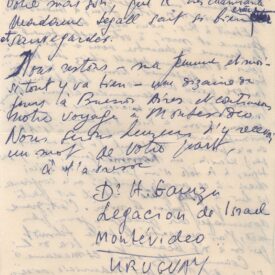 votre maison, que
Madame Segall sait si bien
sauvegarder.
Nous restons – ma femme et moi –
si tout y va bien – une dizaine de
jours à Buenos Aires et continuons
notre voyage à Montevideo.
Nous serons heureux d'y recevoir
un mot de votre part.
à l'adresse
Dr H.
Legacion de Israel
Montévideo
URUGUAY